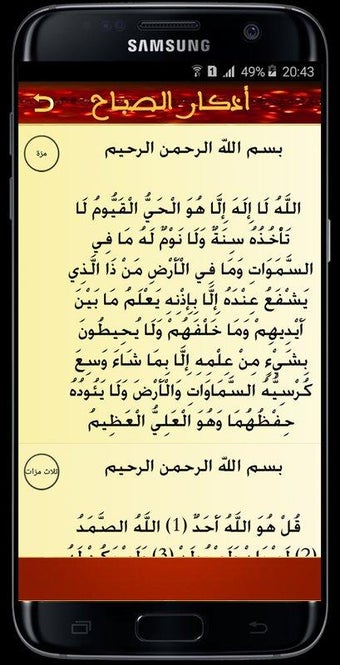 SAMSUNG
1 49% 20:43
أذكار الصباح
مرة
بسم الله الرحمن الرحيم
اللَّهُ لَا إِلَهَ إِلَّا هُوَ الْحَيُّ الْقَيُّومُ لَا
تَأْخُذُهُ سِنَةٌ وَلَا نَوْمٌ لَهُ مَا فِي
السَّمَوَاتِ وَمَا فِي الْأَرْضِ مَنْ ذَا الَّذِي
يَشْفَعُ عِنْدَهُ إِلَّا بِإِذْنِهِ يَعْلَمُ مَا بَيْنَ
أَيْدِيهِمْ وَمَا خَلْفَهُمْ وَلَا يُحِيطُونَ
بِشَيْءٍ مِنْ عِلْمِهِ إِلَّا بِمَا شَاءَ وَسِعَ
كُرْسِيُّهُ السَّمَاوَاتِ وَالْأَرْضَ وَلَا يَئُودُهُ
حِفْظُهُمَا وَهُوَ الْعَلِيُّ الْعَظِيمُ
ثلاث مرات
بسم الله الرحمن الرحيم
قُلْ هُوَ اللَّهُ أَحَدٌ (1) اللَّهُ الصَّمَدُ
(2) (3)